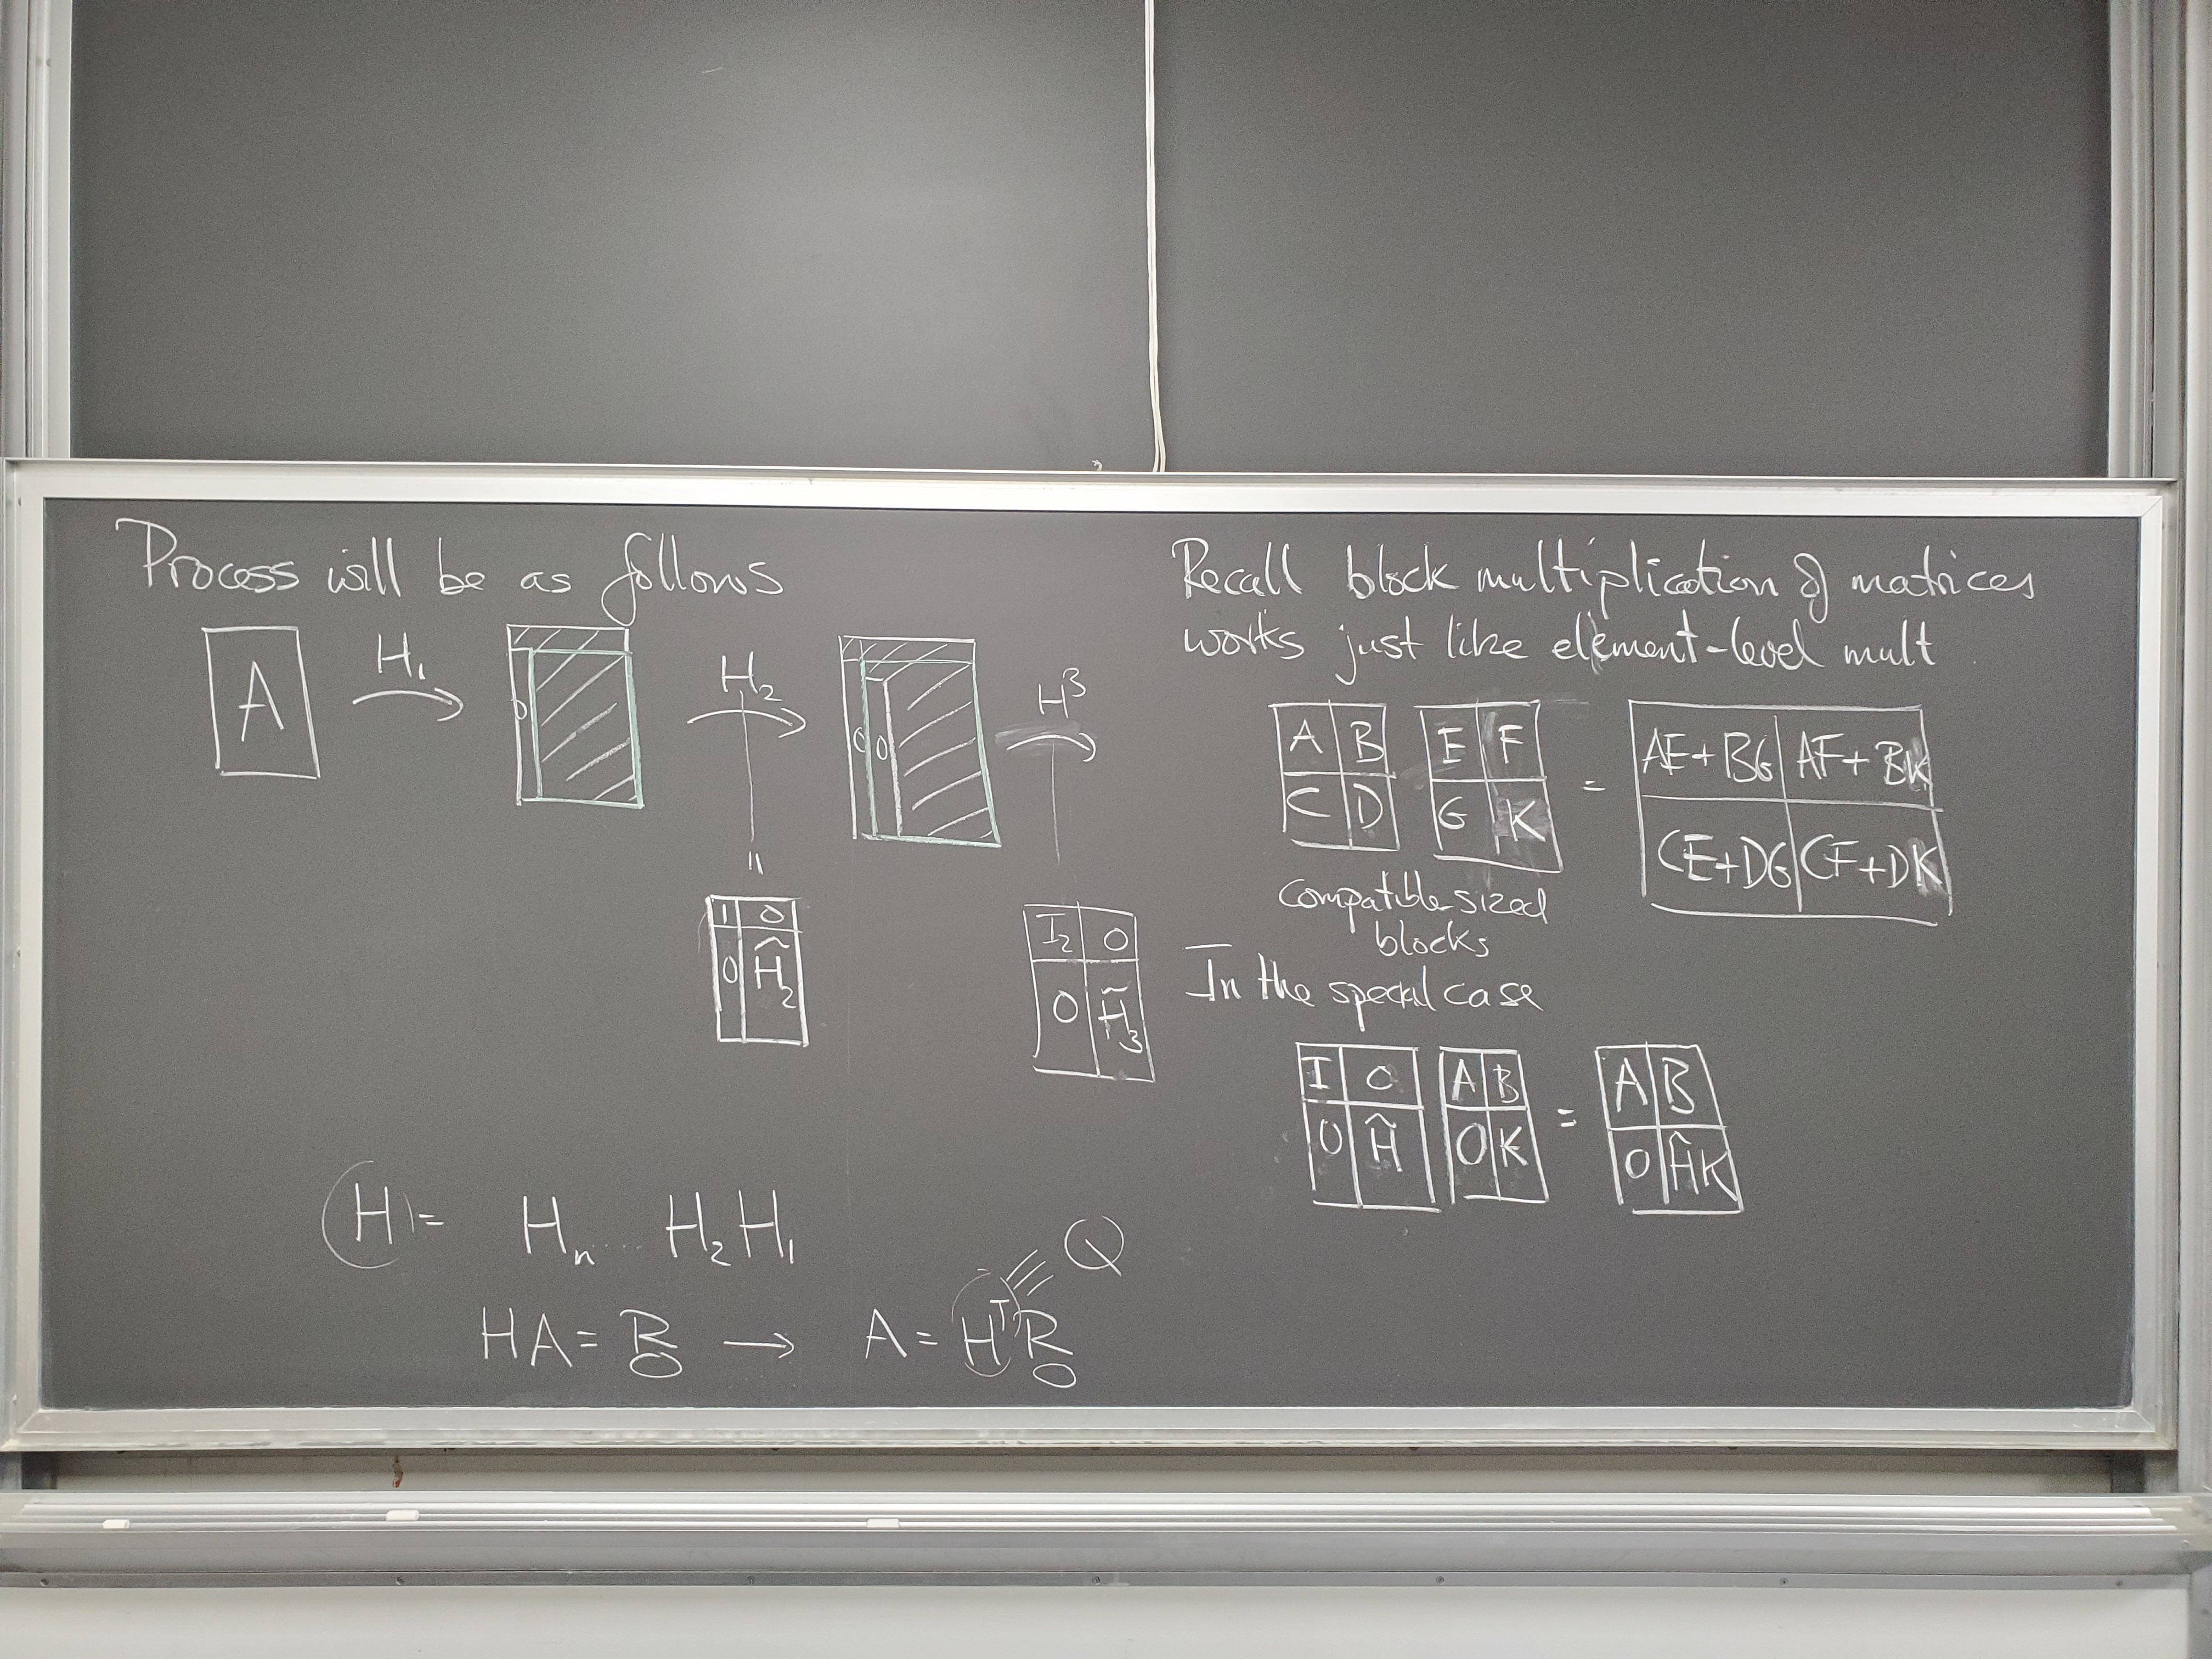 Process will be as follows
A H₁ H₂ H³
0 0 0
"
1 0
0 H̃₂
I₂ 0
0 H̃₃
H = Hₙ .... H₂H₁
HA = R → A = HᵀR
0 0
Q
Recall block multiplication of matrices
works just like element-level mult.
A B E F = AE+BG AF+BK
C D G K CE+DG CF+DK
compatible sized
blocks
In the special case
I 0 A B = A B
0 Ĥ 0 K 0 ĤK